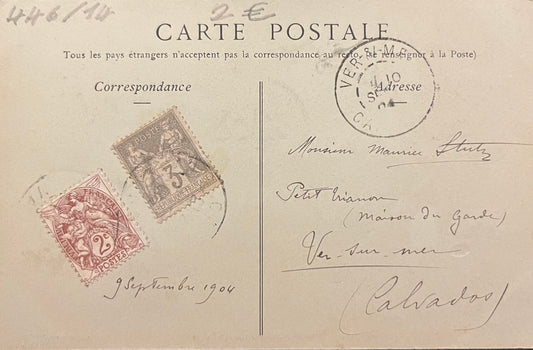 446/14 2 €
CARTE POSTALE
Tous les pays étrangers n'acceptent pas la correspondance au recto. (se renseigner à la Poste)
Correspondance
Adresse
VER-S/-MER
10
04
CA
3
FRANCE
2c
POSTES
9 Septembre 1904
Monsieur Maurice
Petit Trianon
(Maison du Garde)
Ver-sur-mer
(Calvados)